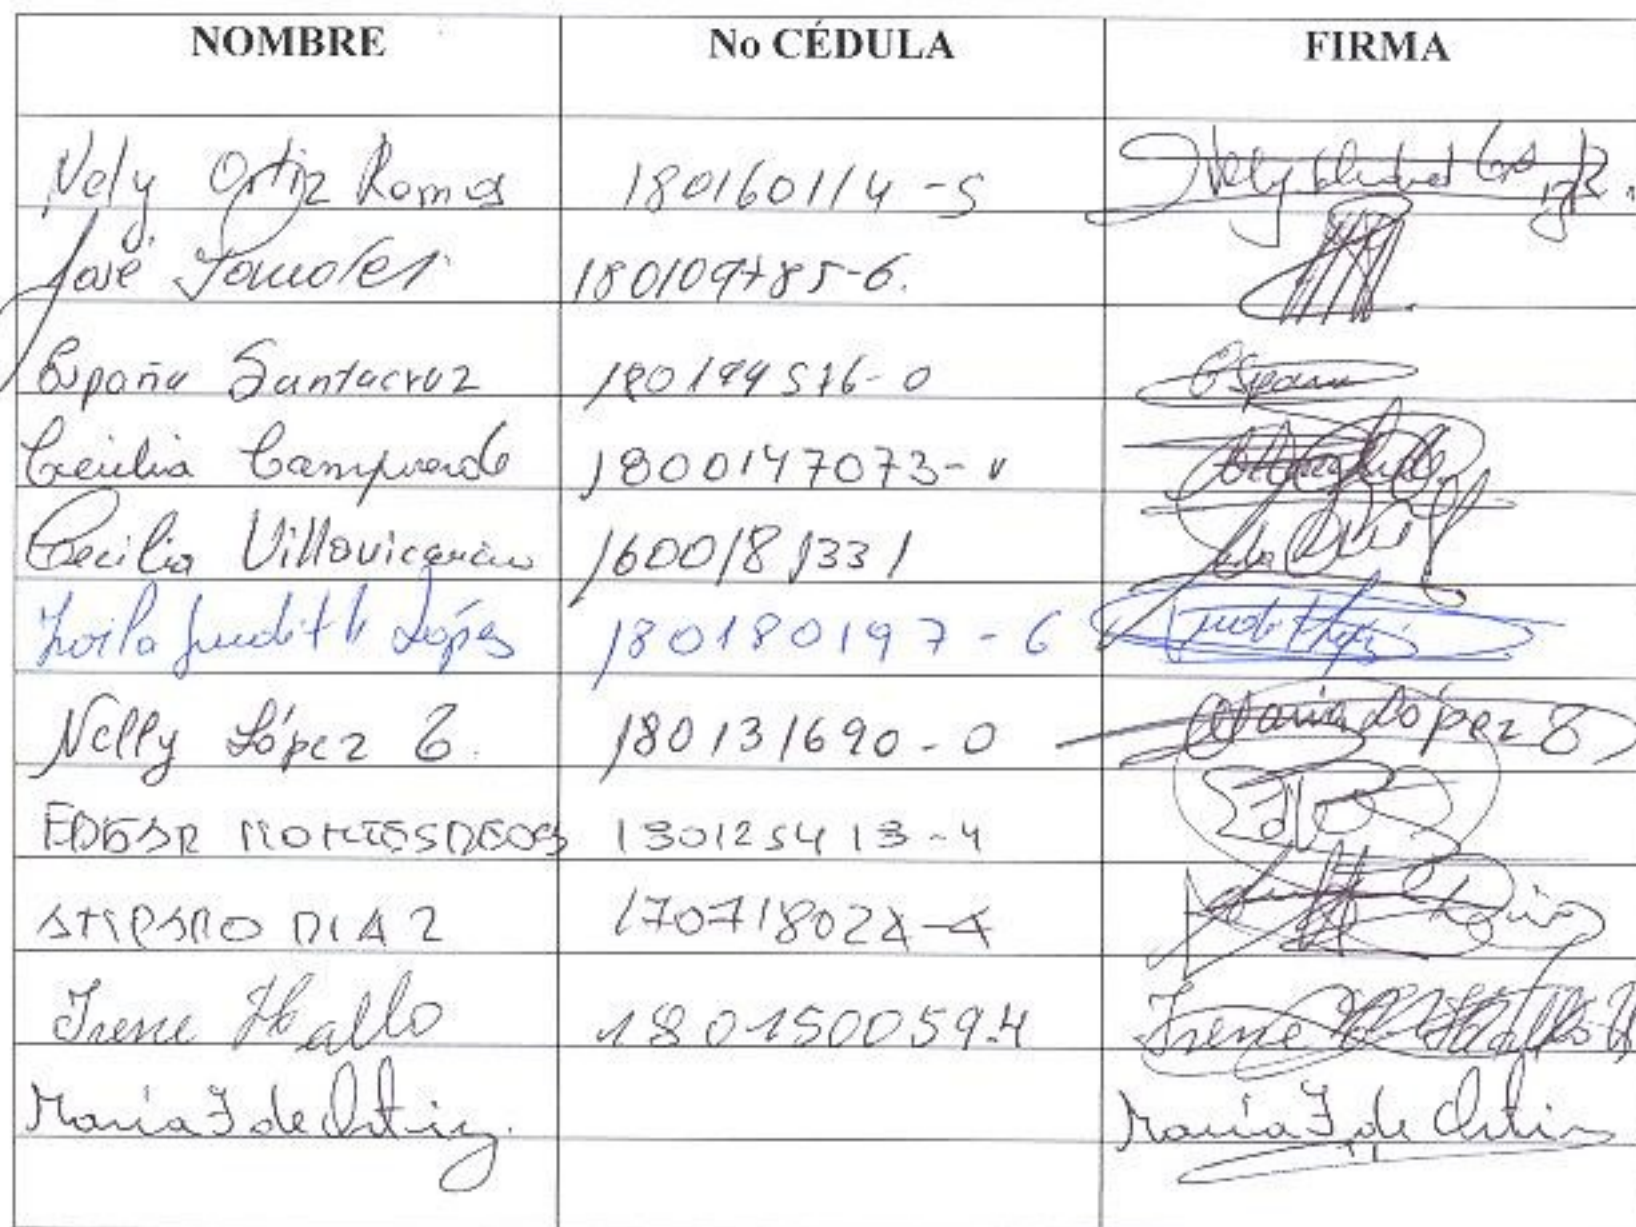 NOMBRE No CÉDULA FIRMA
Nely Ortiz Ramos 180160114-5
José 180109785-6.
España Santacruz 180194576-0 España
Cecilia Campoverde 1800147073-
Cecilia Villavicencio 1600181331
Zoila Judith López 180180197-6 Judith López
Nelly López Z. 180131690-0 María López Z
EDGAR MONTESDEOCA 130125413-4
AMPARO DIAZ 170718024-4
Irene Hallo 180150059.4 Irene Hallo
María I de Ortiz. María I de Ortiz